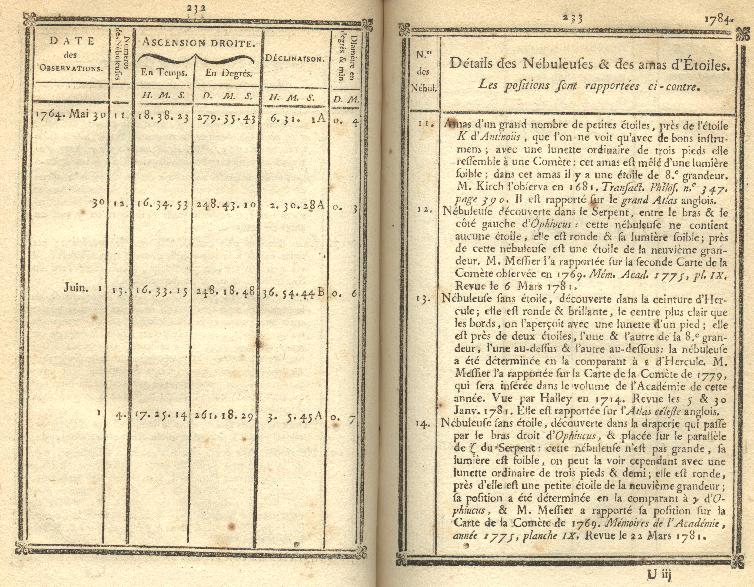 232
DATE
des
OBSERVATIONS.
Numéros
des Nébuleuses
ASCENSION DROITE.
En Temps.
En Degrés.
DÉCLINAISON.
Diamètre en
degrés & min.
H. M. S.
D. M. S.
H. M. S.
D. M.
1764. Mai 30 11. 18.38.23 279.35.43 6.31. 1A 0. 4
30 12. 16.34.53 248.43.10 2.30.28A 0. 3
Juin. 1 13. 16.33.15 248.18.48 36.54.44B 0. 6
1 4. 17.25.14 261.18.29 3. 5.45A 0. 7
233
1784.
N.os
des
Nébul.
Détails des Nébuleuſes & des amas d'Étoiles.
Les poſitions ſont rapportées ci-contre.
11. Amas d'un grand nombre de petites étoiles, près de l'étoile
K d'Antinoüs, que l'on ne voit qu'avec de bons inſtru-
mens; avec une lunette ordinaire de trois pieds elle
reſſemble à une Comète: cet amas eſt mêlé d'une lumière
foible; dans cet amas il y a une étoile de 8.e grandeur.
M. Kirch l'obſerva en 1681. Tranſact. Philoſ. n.° 347.
page 390. Il eſt rapporté ſur le grand Atlas anglois.
12. Nébuleuſe découverte dans le Serpent, entre le bras & le
côté gauche d'Ophiucus: cette nébuleuſe ne contient
aucune étoile, elle eſt ronde & ſa lumière foible; près
de cette nébuleuſe eſt une étoile de la neuvième gran-
deur. M. Meſſier l'a rapportée ſur la ſeconde Carte de la
Comète obſervée en 1769. Mém. Acad. 1775, pl. IX.
Revue le 6 Mars 1781.
13. Nébuleuſe ſans étoile, découverte dans la ceinture d'Her-
cule; elle eſt ronde & brillante, le centre plus clair que
les bords, on l'aperçoit avec une lunette d'un pied; elle
eſt près de deux étoiles, l'une & l'autre de la 8.e gran-
deur, l'une au-deſſus & l'autre au-deſſous: la nébuleuſe
a été déterminée en la comparant à ε d'Hercule. M.
Meſſier l'a rapportée ſur la Carte de la Comète de 1779,
qui ſera inſérée dans le volume de l'Académie de cette
année. Vue par Halley en 1714. Revue les 5 & 30
Janv. 1781. Elle eſt rapportée ſur l'Atlas céleſte anglois.
14. Nébuleuſe ſans étoile, découverte dans la draperie qui paſſe
par le bras droit d'Ophiucus, & placée ſur le parallèle
de ζ du Serpent: cette nébuleuſe n'eſt pas grande, ſa
lumière eſt foible, on peut la voir cependant avec une
lunette ordinaire de trois pieds & demi; elle eſt ronde,
près d'elle eſt une petite étoile de la neuvième grandeur;
ſa poſition a été déterminée en la comparant à γ d'O-
phiucus, & M. Meſſier a rapporté ſa poſition ſur la
Carte de la Comète de 1769. Mémoires de l'Académie,
année 1775, planche IX. Revue le 22 Mars 1781.
U iij